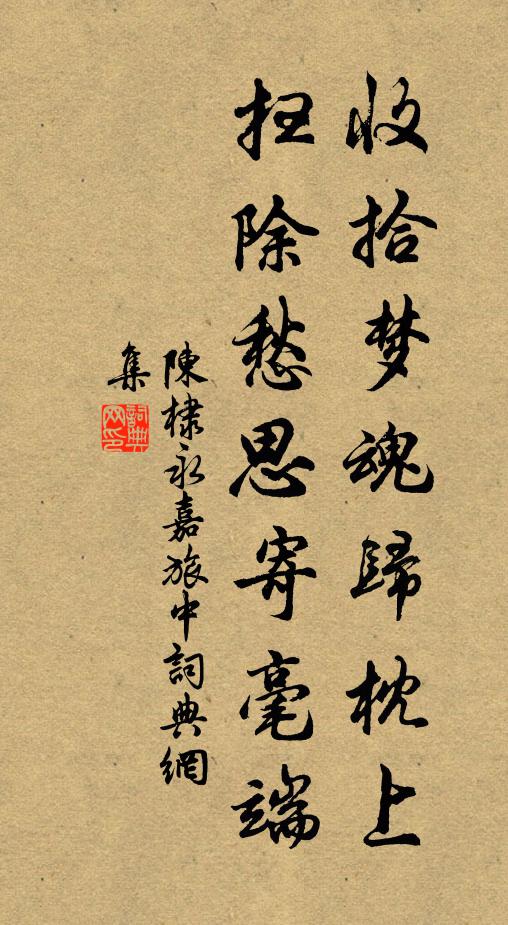 收拾梦魂歸枕上
扫除愁思寄毫端
陳棣永嘉旅中詞典網
集
詞典网印